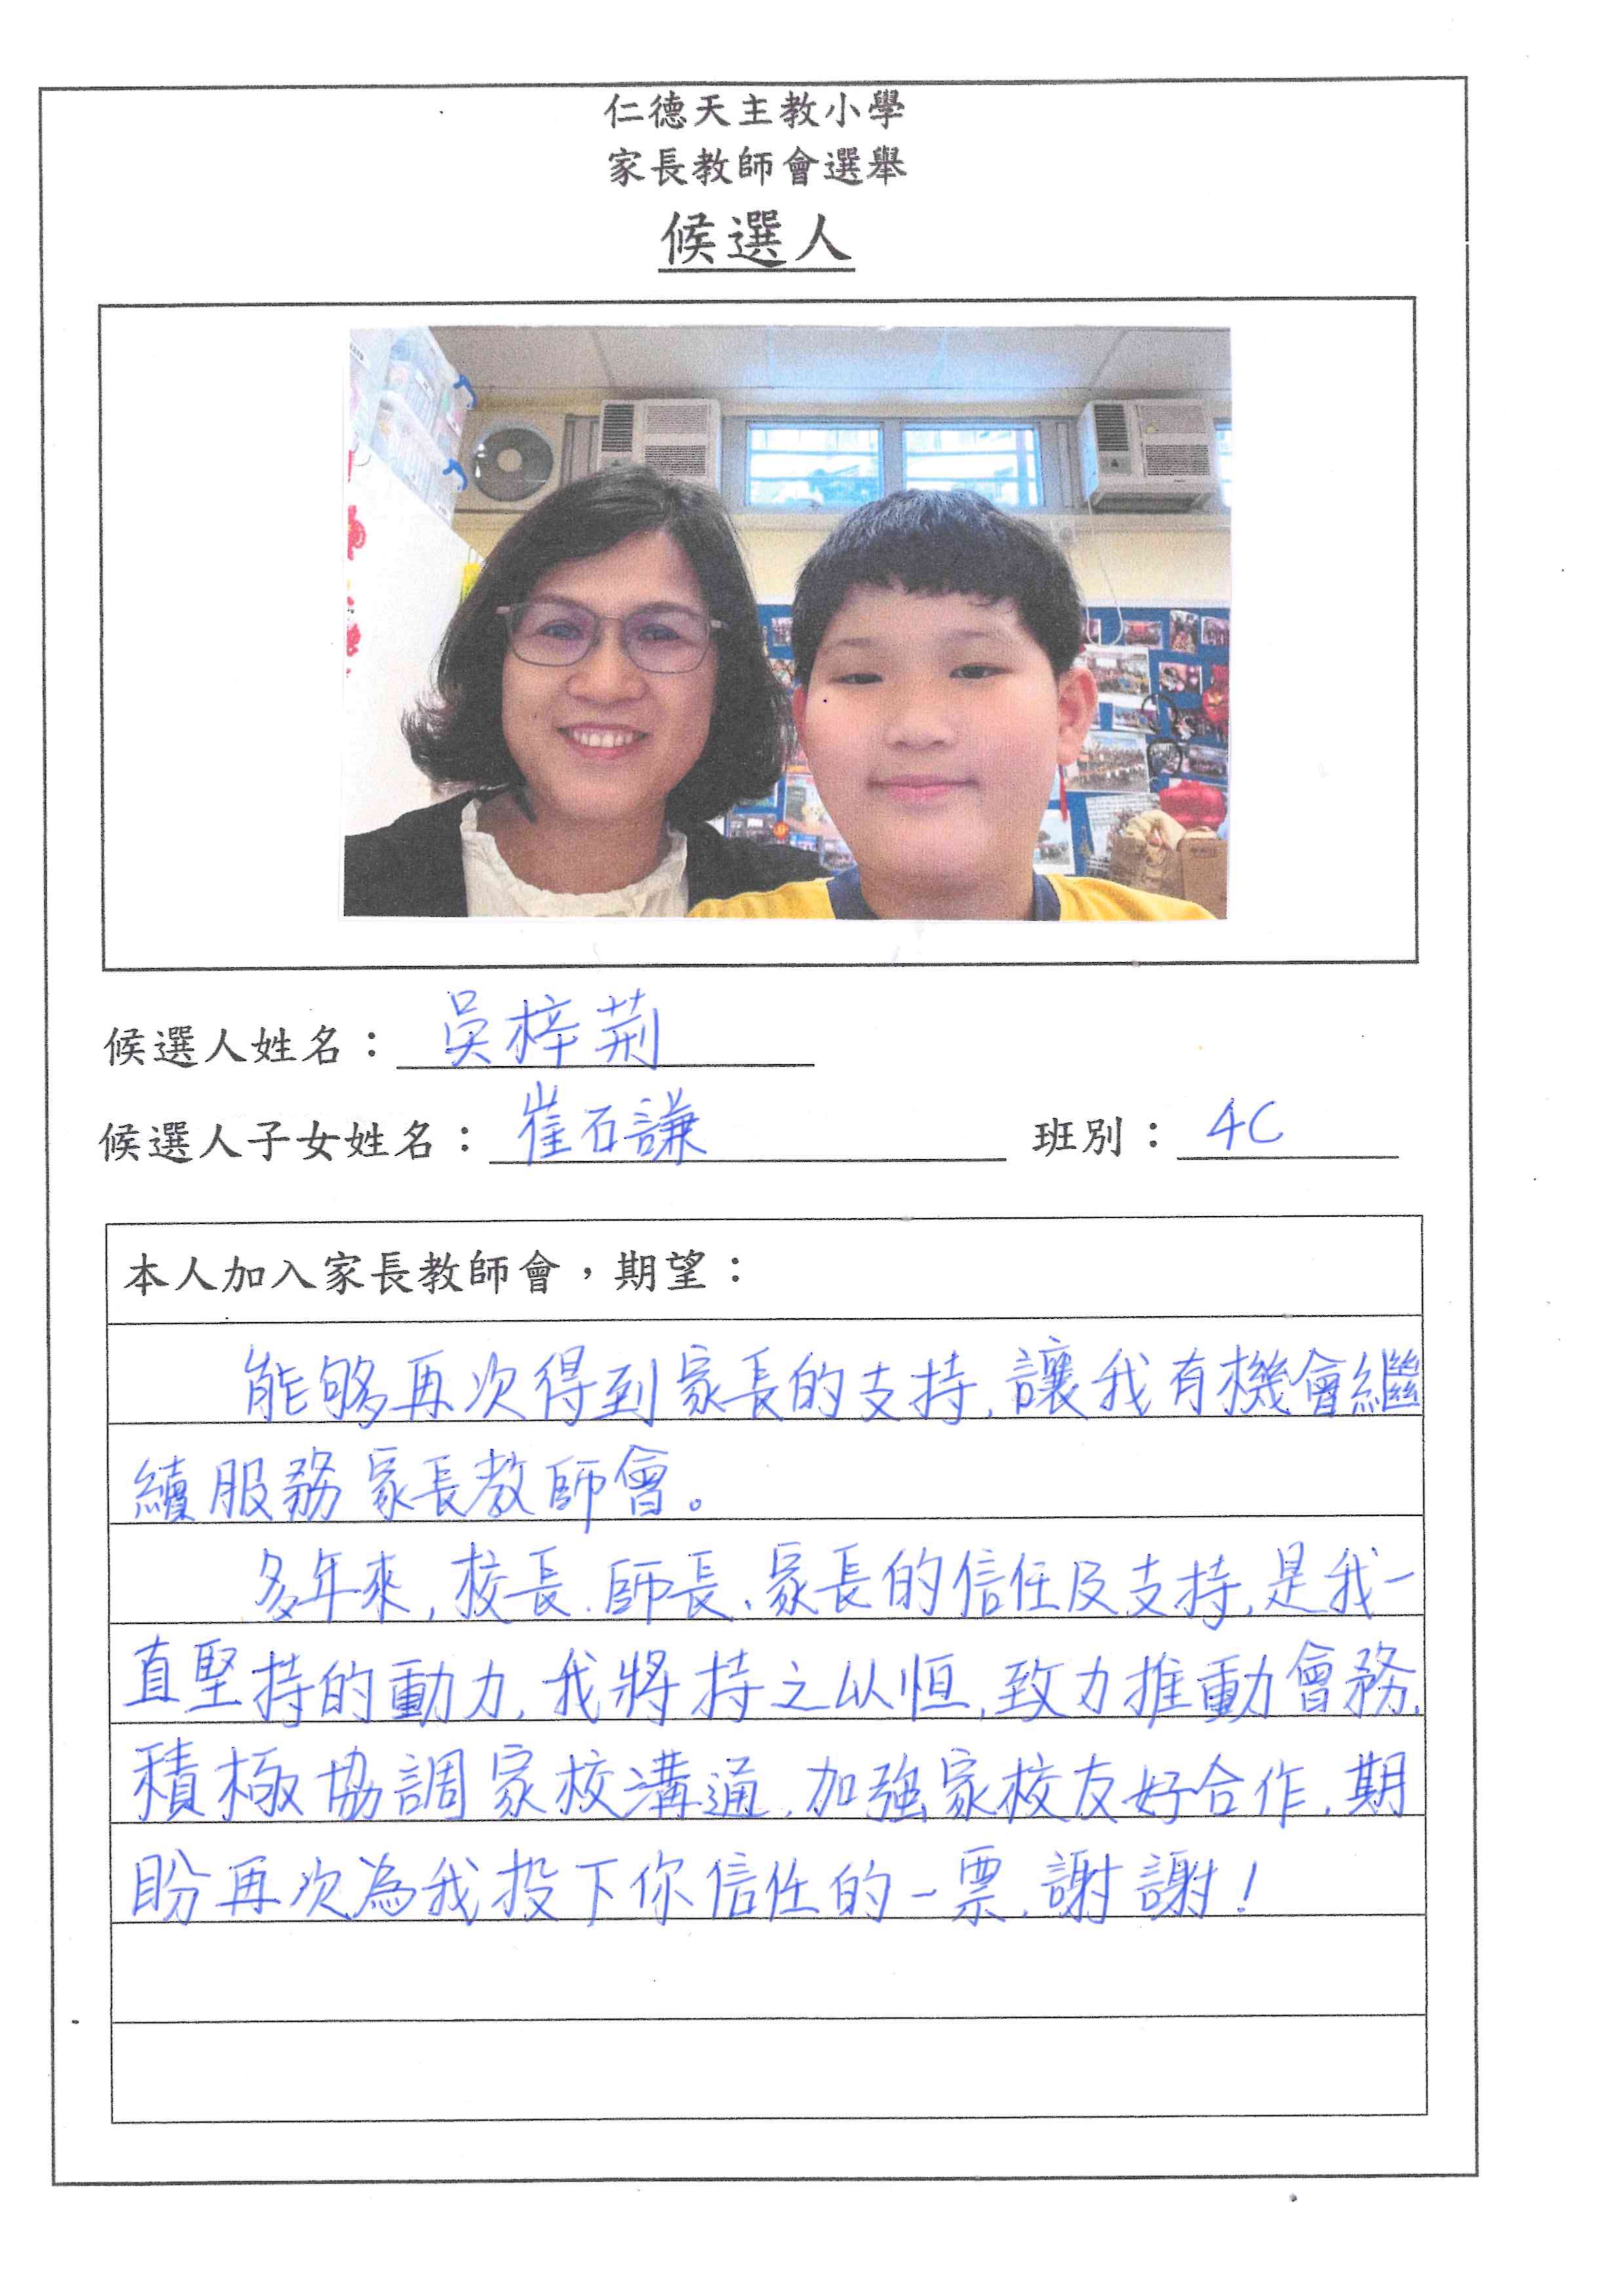 仁德天主教小學
家長教師會選舉
候選人
候選人姓名：吳梓荊
候選人子女姓名：崔石謙 班別：4C
本人加入家長教師會，期望：
能夠再次得到家長的支持,讓我有機會繼
續服務家長教師會。
多年來,校長、師長、家長的信任及支持,是我一
直堅持的動力,我將持之以恒,致力推動會務,
積極協調家校溝通,加強家校友好合作,期
盼再次為我投下你信任的一票,謝謝!